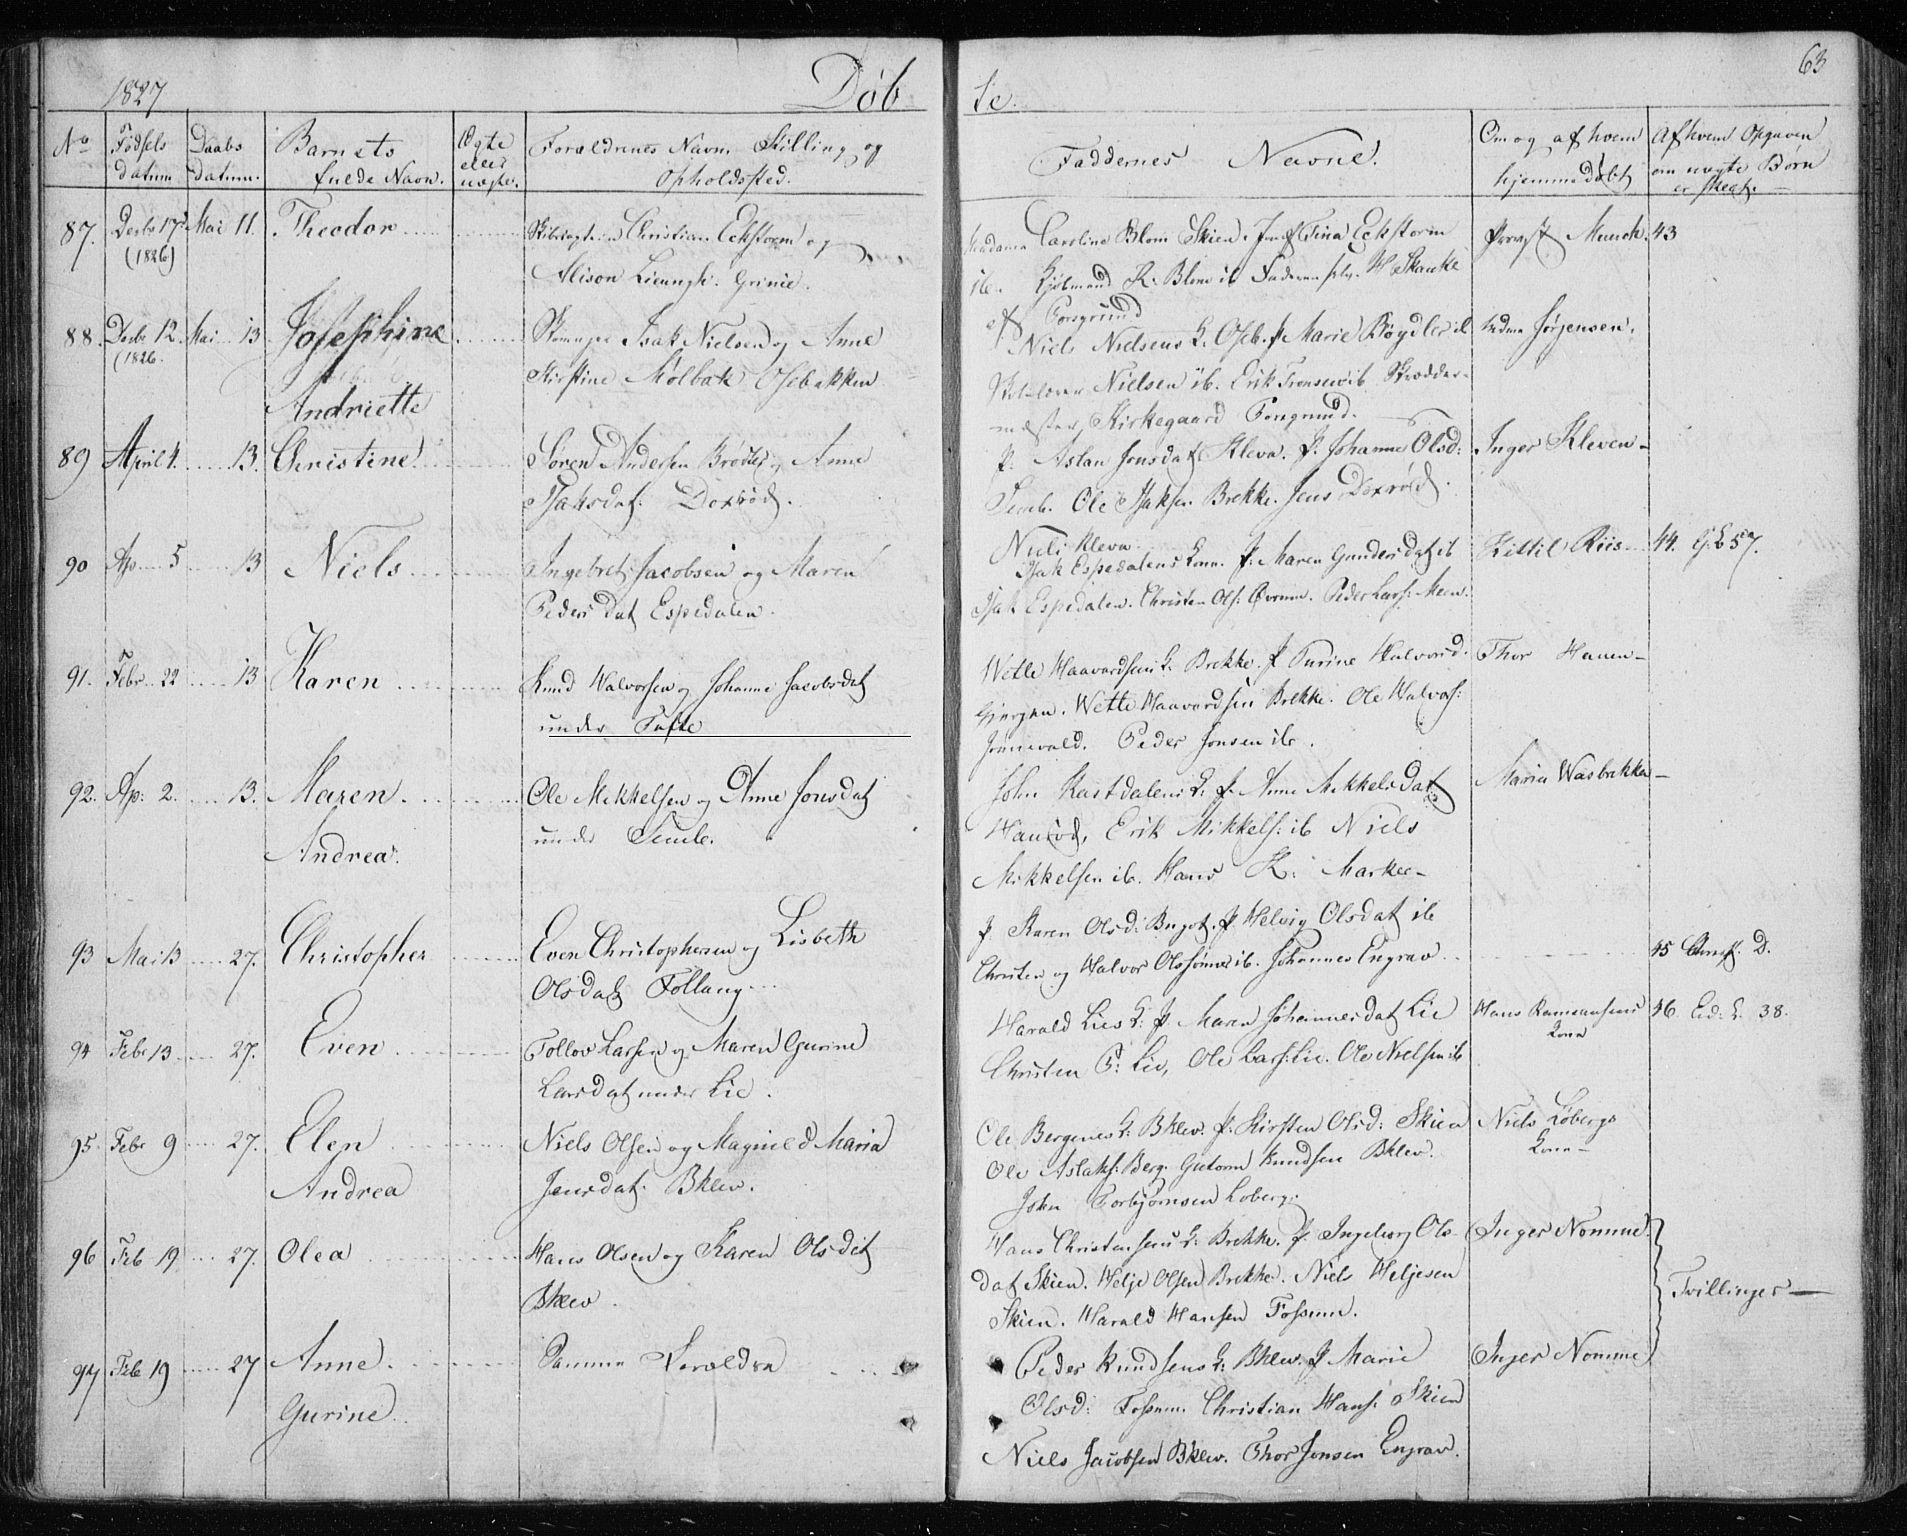 1827
Døb
se.
63
No
Fødsels
datum
Daabs
datum.
Barnets
fulde Navn.
Ægte
eller
uægte.
Forældrenes Navn, Stilling og
Opholdssted.
Faddernes Navne.
Om og af hvem
hjemmedøbt
Af hvem Opgaven
om uægte Børn
er skeet.
87. Decbr 17 Mai 11. Theodor
(1826)
Christian Eckstorm og
Alison Lieungh. Grinie.
Madame Caroline Blom Skien. Jomf Tina Eckstorm
ib. Kjøbmand R. Blom ib Faderen selv. H Skanke
af Porsgrund
Provst Munch. 43
88. Decbr 12. Mai 13 Josephine
(1826.
Andriette
Isak Nielsen og Anne
Kirstine Mølbak Osebakken
Niels Nielsens K. Oseb. P Marie Bøgdler ib
Skolelærer Nielsen ib. Erik Tronsen ib Skrædder-
mester Kirkegaard Porsgrund.
Madme Jørgensen.
89 April 1. 13. Christine
Søren Andersen og Anne
Isaksdat. Doxrød.
P. Aslau Jonsdat Kleva. P. Johanne Olsd:
Tveb. Ole Isaksen Brekke. Jens Doxrød.
Nuli Kleva
Inger Kleven-
90 Ap 5 13 Niels
Ingebret Jacobsen og Maren
Peders Dat Espedalen.
Isak Espedalens Kone. P. Maren Gundersdat ib
Isak Espedalen. Christen Ols: Øvrum. Peder Lars: Meen.
Kittil Riis 44. G: L 57.
91. Febr. 22 13 Karen
Knud Halvorsen og Johanne Jacobsdat
under Tufte
Wetle Haavardsens K. Brekke. P Turine Halvorsd.
Gjerpen. Wetle Haavardsen Brekke. Ole Halvors:
Peder Jonsen ib.
Thor Hauen-
92. Ap: 2. 13. Maren
Andrea.
Ole Mikkelsen og Anne Jonsdat
under
John Kastdalens K: P. Anne Mikkelsdat
Hansrød, Erik Mikkels: ib Niels
Mikkelsen ib. Hans K:
Maria Wasbrekka-
93 Mai 13 27. Christopher
Even Christophersen og Lisbeth
Olsdat Follaug
P Karen Olsd: P Helvig Olsdat ib
Christen og Halvor Olssønner ib. Johannes Engrav
45 D.
94 Febr 13 27. Even
Tollov Larsen og Maren Gurine
Larsdat under Lie.
Harald Lies K: P Maren Johannesdat Lie
Christen P: Lie, Ole Lars: Lie. Ole Nielsen ib
Hans
Kone
46 38.
95. Febr 9 27. Elen
Andrea
Niels Olsen og Magnild Maria
Jensdat. Bklev.
Ole Bergenes K: Bklev. P: Kirsten Olsd: Skien
Ole Aslaks: Berg. Gutorm Knudsen Bklev.
John Torbjørnsen Loberg.
Niels Løbergs
Kone-
96 Feb 19 27. Olea
Hans Olsen og Karen Olsdat
Bklev.
Hans Christensens K: Brekke. P. Ingeborg Ols
dat Skien. Helje Olsen Brekke. Niels Heljesen
Skien. Harald Hansen Fossum.
Inger Nomme.
Tvillinger-
97 Feb 19 27 Anne
Gurine.
Samme Forældre
Peder Knudsens K: Bklev. P Marie
Olsd: Fossum. Christian Hans: Skien
Niels Jacobsen Bklev. Thor Jonsen Engrav.
Inger Nomme